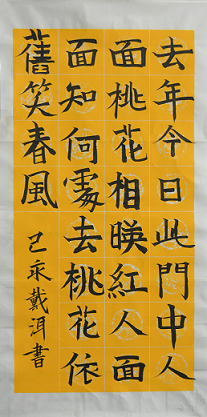 去年今日此門中人
面桃花相暎紅人面
面知何處去桃花依
舊笑春風
己亥戴洱書